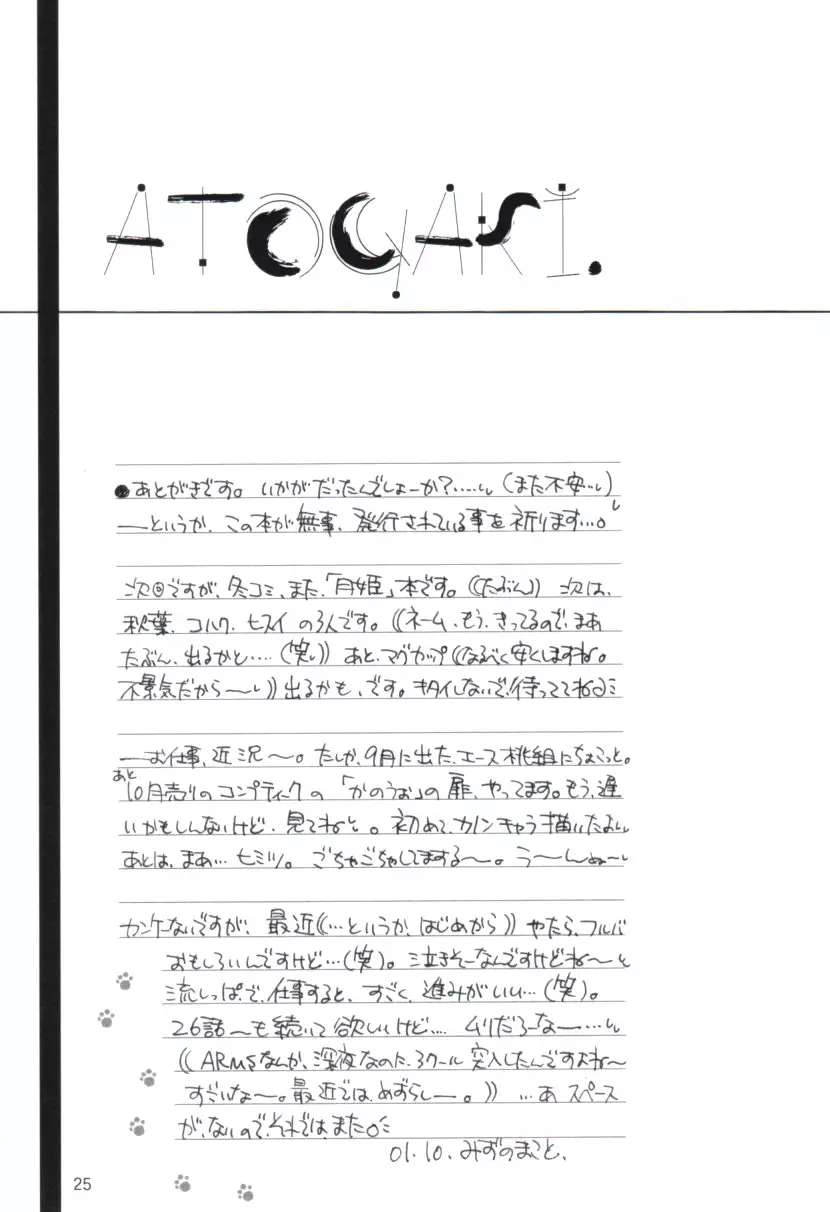 ATOGAKI.
●あとがきです。いかがだったんでしょーか?……(また不安…)
―というか、この本が無事、発行されている事を祈ります…。
次回ですが、冬コミ、また、「月姫」本です。((たぶん)) 次は、
秋葉、コハク、ヒスイの3人です。((ネーム、もう、きってるので、まあ
たぶん、出るかと…(笑)) あと、マグカップ((なるべく安くしますね。
不景気だから〜)) 出るかも、です。キタイしないで、待っててね
―お仕事、近況〜。たしか、9月に出た、エース桃組にちょこっと。
あと
10月売りのコンプティークの「かのうぉ」の扉、やってます。もう、遅
いかもしんないけど、見てねと。初めて、カノンキャラ描いたよ
あとは、まあ…ヒミツ。ごちゃごちゃしてまする〜。う〜んぬ〜
カンケーないですが、最近((…というか、はじめから)) やたら、フルバ
おもしろいんですけど…(笑)。泣きそーなんですけどね〜と
流しっぱで、仕事すると、すごく、進みがいい…(笑)。
26話〜も続いて欲しいけど…、ムリだろーなー…
((ARMSなんか、深夜なのに、3クール突入したんですよね〜
すごいな〜。最近では、めずらしー。)) …あ スペース
が、ないので、それでは、また。
01.10. みずのまこと、
25